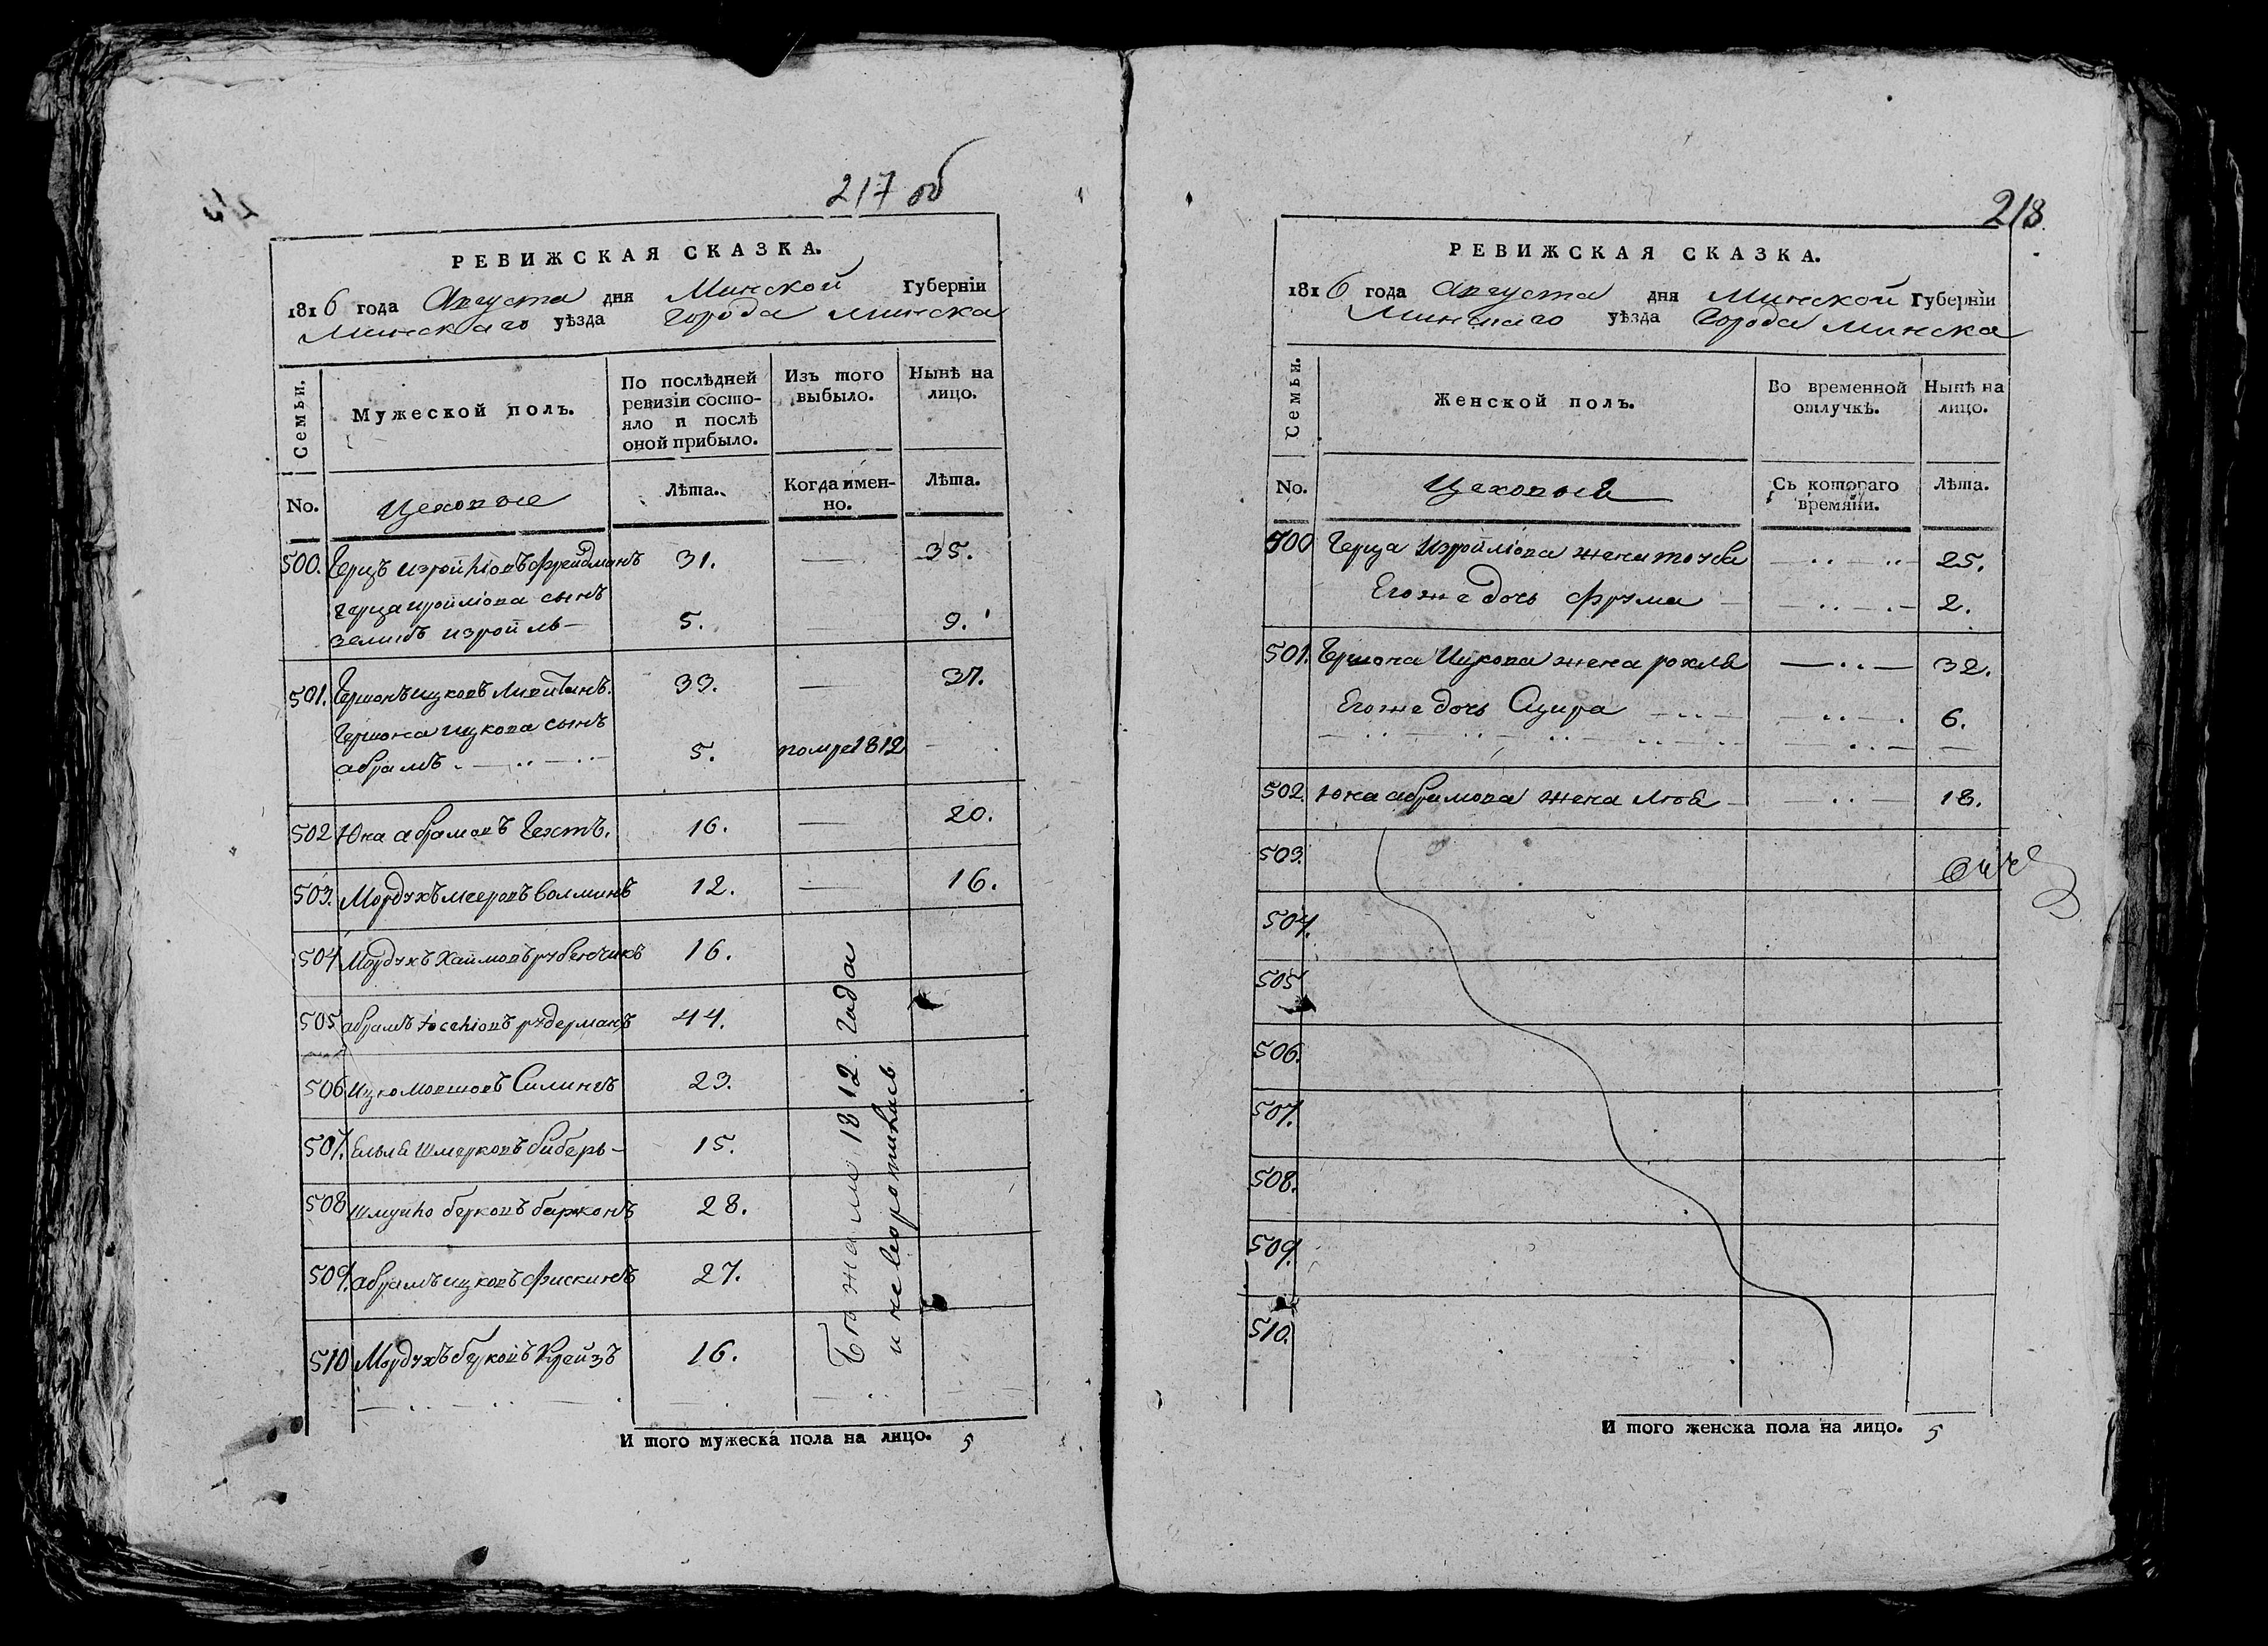 217 об
РЕВИЖСКАЯ СКАЗКА.
1816 года Августа дня Минской Губерніи
Минскаго уѣзда Города Минска
Семьи.
Мужеской полъ.
По послѣдней ревизіи состояло и послѣ оной прибыло.
Изъ того выбыло.
Нынѣ на лицо.
No.
Цеховые
Лѣта.
Когда именно.
Лѣта.
500. Герцъ Изройліовъ Фрейдманъ 31. — 35.
Герца Изройліова сынъ
Зеликъ Изройль — 5. — 9.
501. Гершонъ Ицковъ 33. — 37.
Гершона Ицкова сынъ
абрамъ 5. помре 1812 —
502 Юна абрамовъ Гехтъ. 16. — 20.
503. Мордухъ мееровъ волминъ 12. — 16.
504 Мордухъ Хаймовъ рубенчикъ 16.
505 абрамъ Іоселіовъ рудерманъ 44.
506 Ицко Мовшовъ 23.
507. Ельля Шмерковъ биберъ — 15.
508 Шмуйло берковъ 28.
509. абрамъ ицковъ Фискинъ 27.
510 Мордухъ берковъ Крейзъ 16.
Бежали 1812. Года
и неворотились
И того мужеска пола на лицо. 5
218
РЕВИЖСКАЯ СКАЗКА.
1816 года Августа дня Минской Губерніи
Минскаго уѣзда Города Минска
Семьи.
Женской полъ.
Во временной отлучкѣ.
Нынѣ на лицо.
No.
Цеховыя
Съ котораго времяни.
Лѣта.
500 Герца Изройліова жена 25.
Егоже дочь Фрума — 2.
501. Гершона Ицкова жена рохля — 32.
Егоже дочь Сцира 6.
502. Юна абрамова жена Либа — 18.
503.
504.
505
506.
507.
508.
509.
510.
И того женска пола на лицо. 5